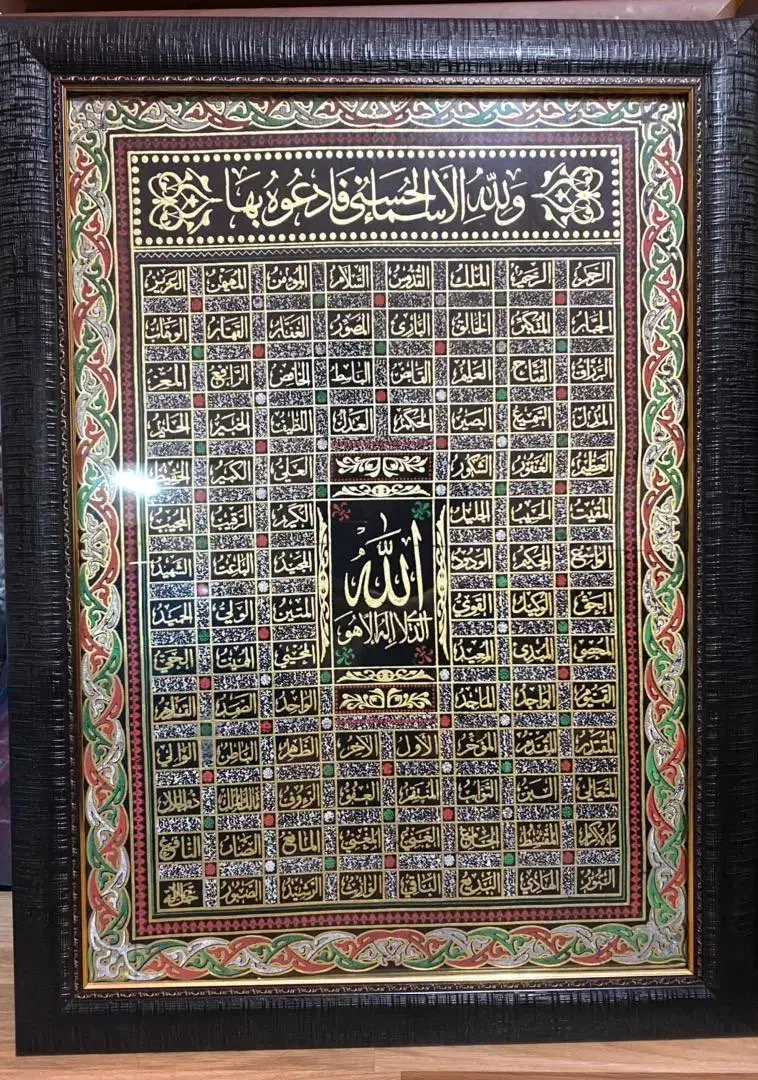 ولله الأسماء الحسنى فادعوه بها
الرحمن الرحيم الملك القدوس السلام المؤمن المهيمن العزيز
الجبار المتكبر الخالق البارئ المصور الغفار القهار الوهاب
الرزاق الفتاح العليم القابض الباسط الخافض الرافع المعز
المذل السميع البصير الحكم العدل اللطيف الخبير الحليم
العظيم الغفور الشكور العلي الكبير الحفيظ
المقيت الحسيب الجليل الكريم الرقيب المجيب
الله
الواسع الحكيم الودود المجيد الباعث الشهيد
الحق الوكيل القوي المتين الولي الحميد
الذي لا إله إلا هو
المحصي المبدئ المعيد المحيي المميت الحي
القيوم الواجد الماجد الواحد الصمد القادر
المقتدر المقدم المؤخر الأول الآخر الظاهر الباطن الوالي
المتعالي البر التواب المنتقم العفو الرؤوف مالك الملك ذو الجلال
والإكرام المقسط الجامع الغني المغني المانع الضار النافع
النور الهادي البديع الباقي الوارث الرشيد الصبور